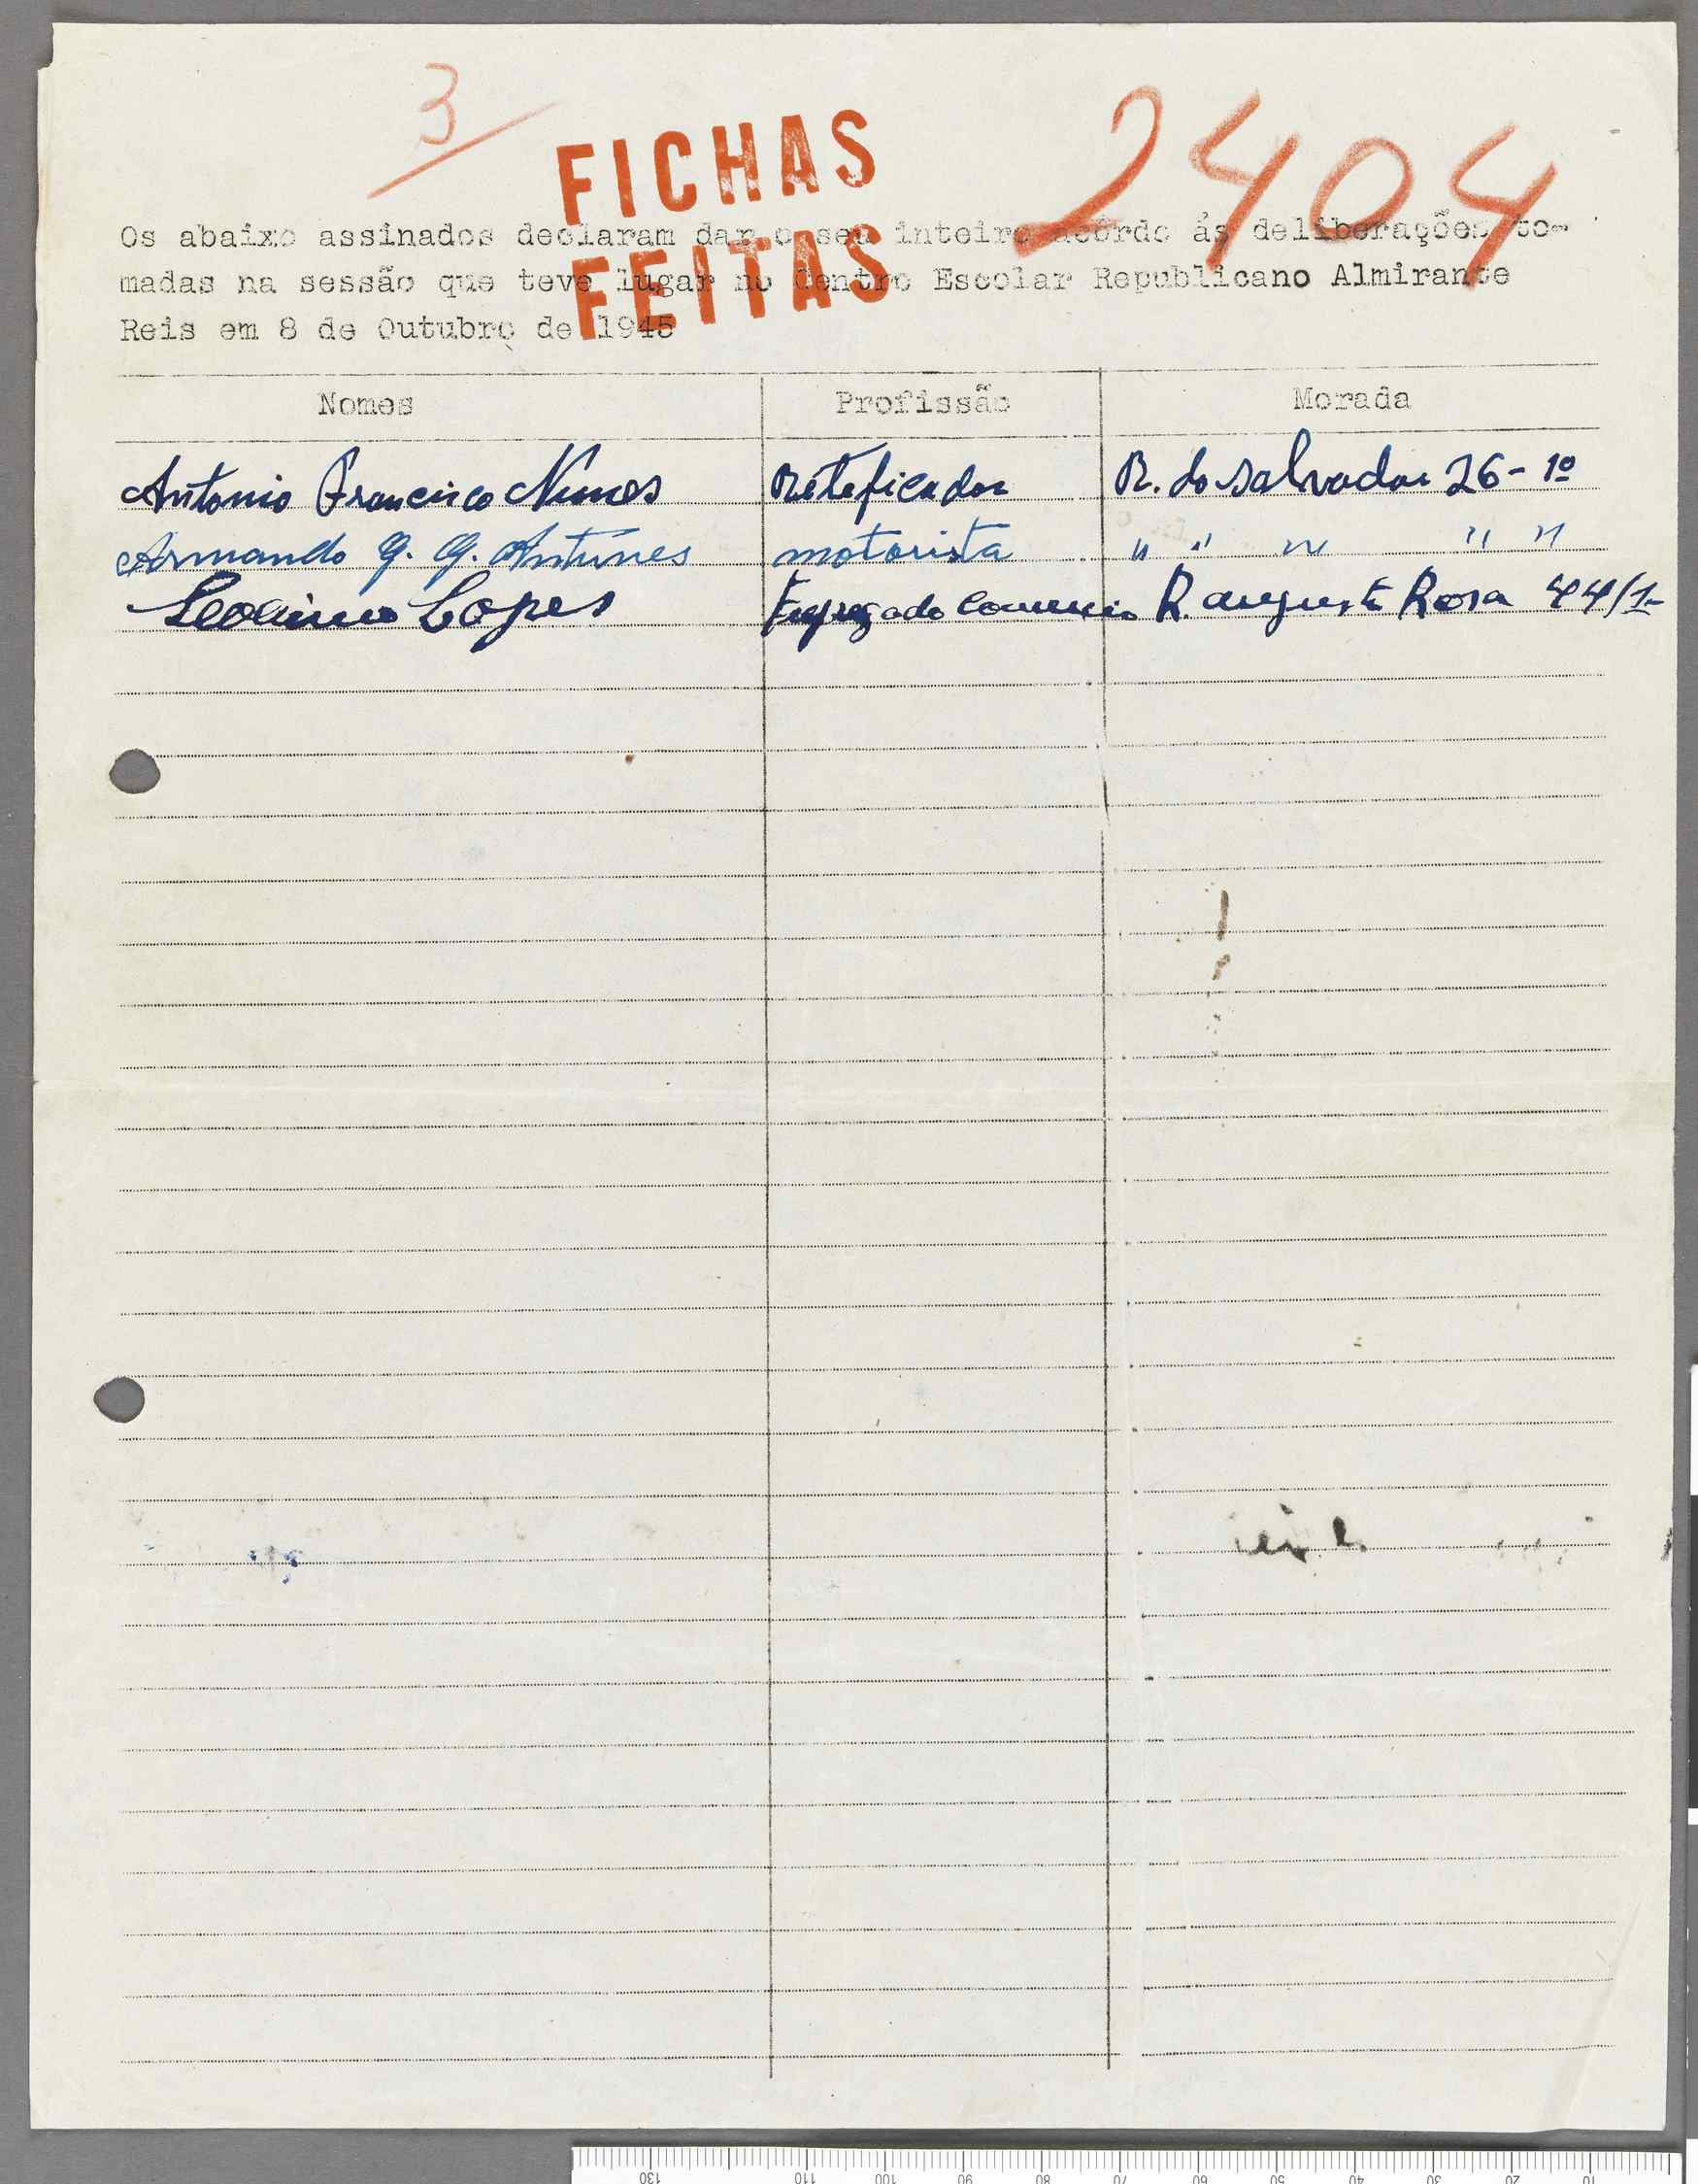 3
2404
FICHAS
FEITAS
Os abaixo assinados declaram dar o seu inteiro acôrdo ás deliberações to-
madas na sessão que teve lugar no Centro Escolar Republicano Almirante
Reis em 8 de Outubro de 1945
Nomes Profissão Morada
Antonio Francisco Nunes Reteficador R. do Salvador 26-1º
Armando G. G. Antunes motorista " " " " "
Lopes Empregado Comercio R. augusto Rosa 44/1-
130 110 100 90 80 70 60 50 40 30 20 10